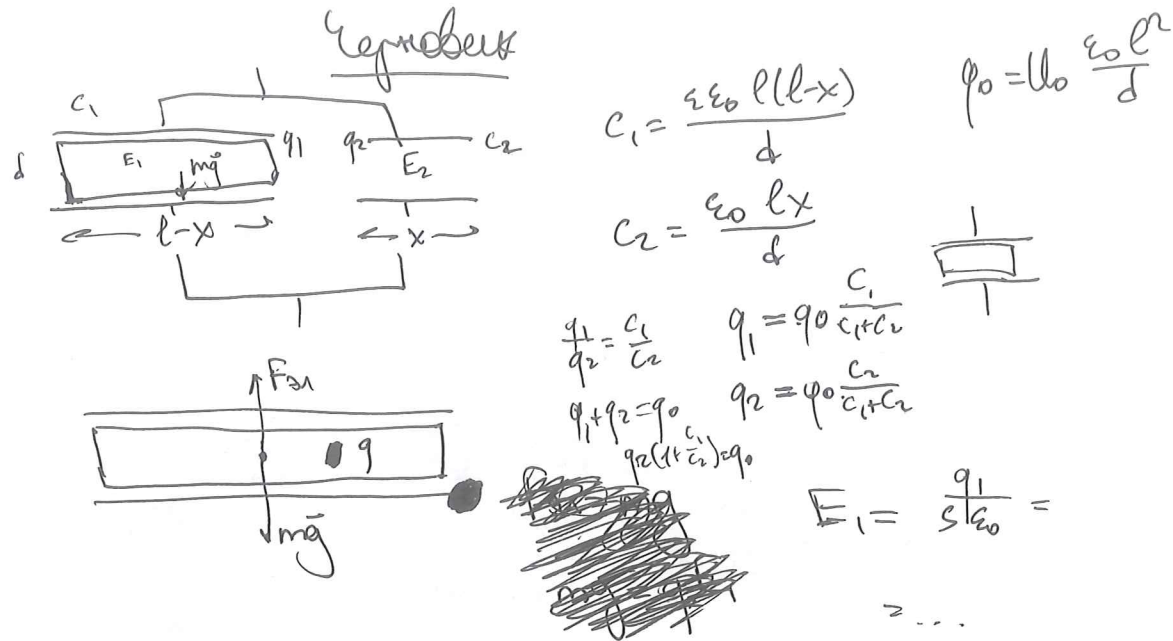 Черновик
C₁
d
E₁
mg⃗
q₁
q₂
C₂
E₂
l-x
x
C₁ = εε₀ l(l-x) / d
φ₀ = U₀ ε₀ l² / d
C₂ = ε₀ lx / d
q₁/q₂ = C₁/C₂
q₁ = q₀ C₁/(C₁+C₂)
q₁+q₂ = q₀
q₂ = q₀ C₂/(C₁+C₂)
q₂(1+C₁/C₂) = q₀
Fэл
q
mg⃗
E₁ = q₁/(S ε₀) =
= ....